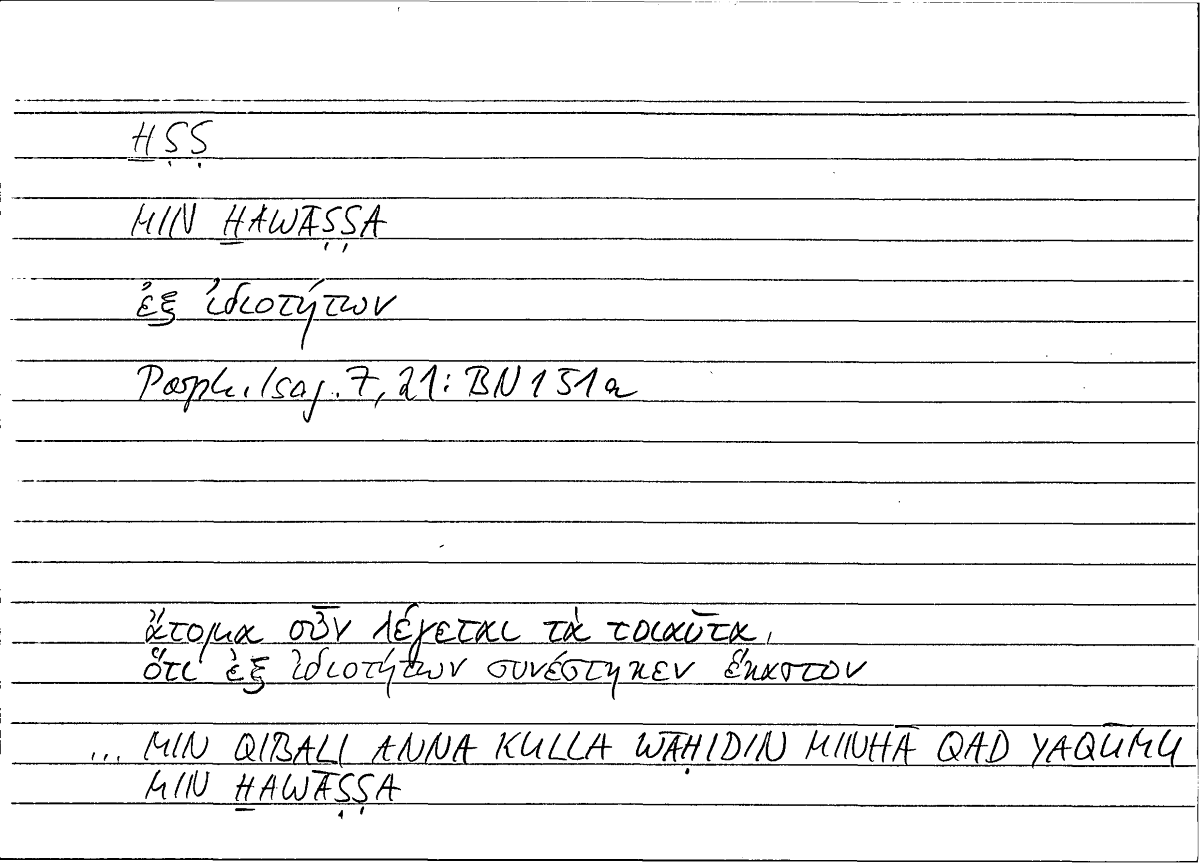 ḪṢṢ
MIN ḪAWĀṢṢA
ἐξ ἰδιοτήτων
Porph. Isag. 7, 21: BN 151a
ἄτομα οὖν λέγεται τὰ τοιαῦτα,
ὅτι ἐξ ἰδιοτήτων συνέστηκεν ἕκαστον
... MIN QIBALI ANNA KULLA WĀḤIDIN MINHĀ QAD YAQŪMU
MIN ḪAWĀṢṢA